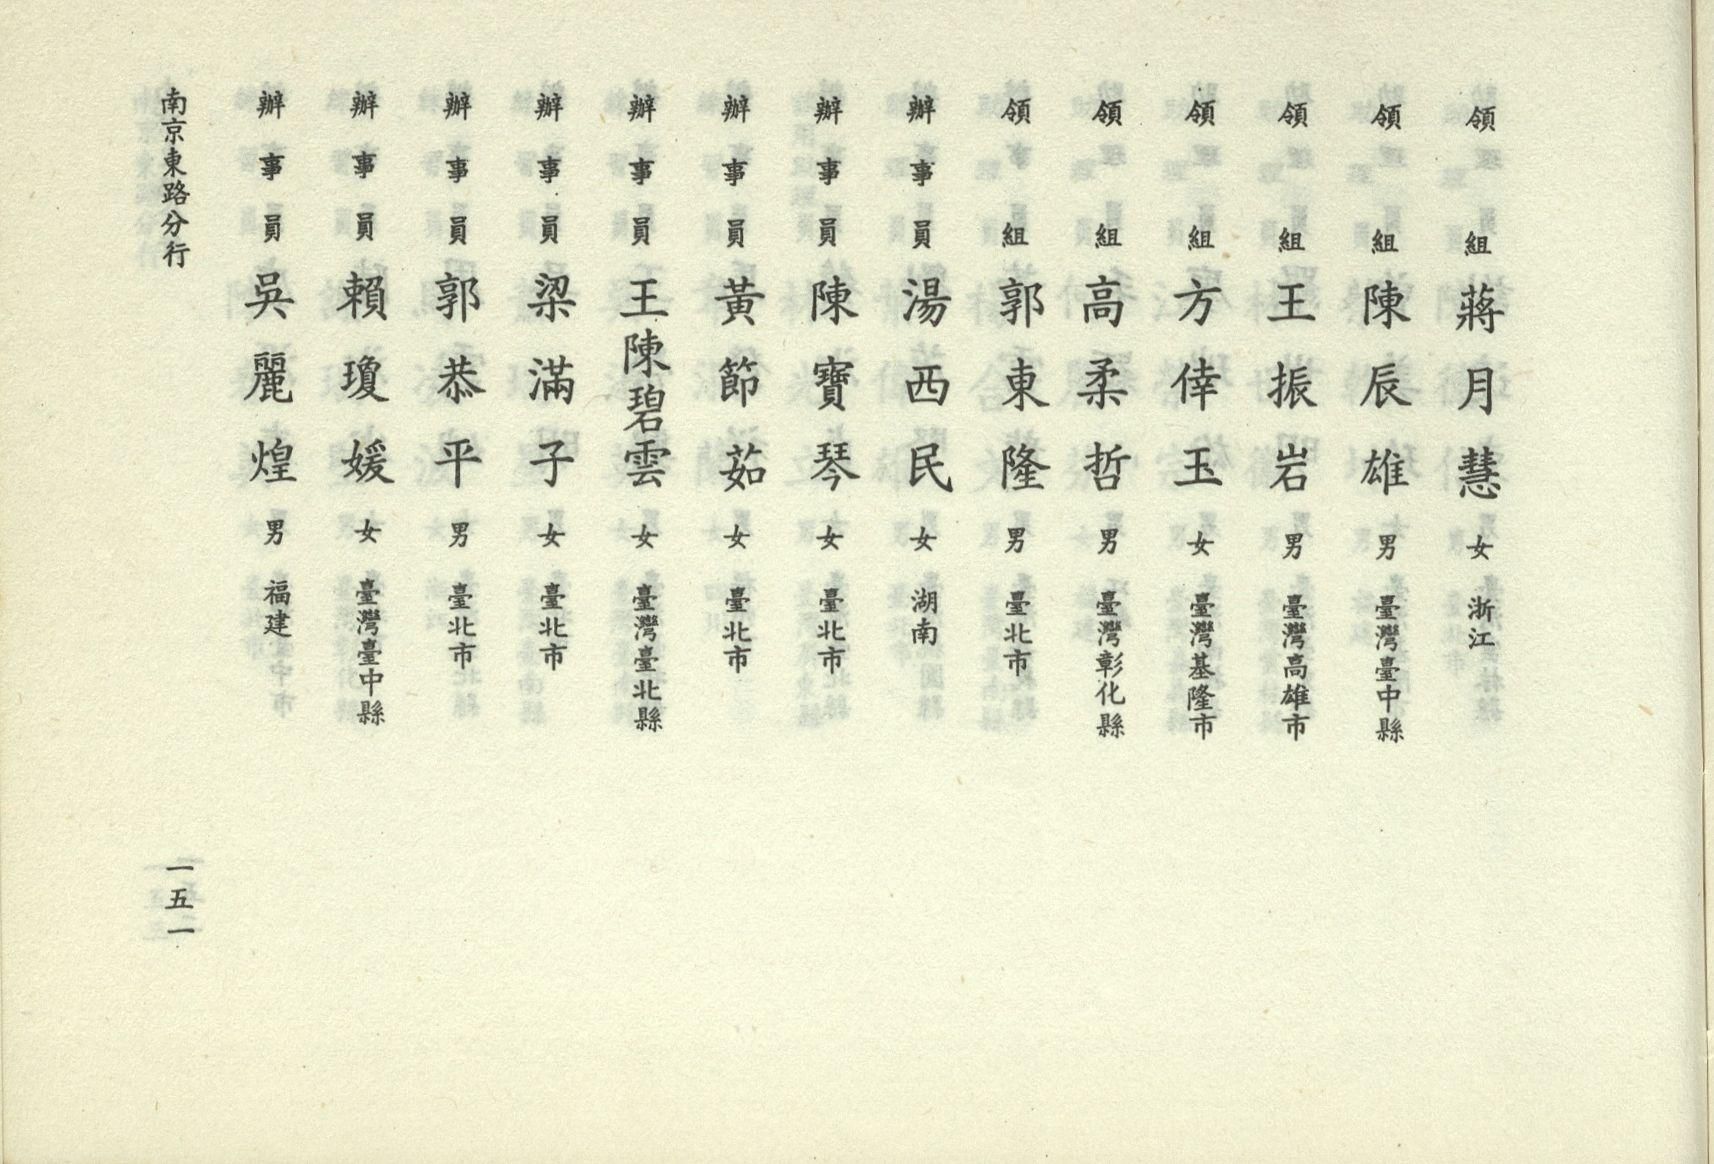 領組 蔣月慧 女 浙江
領組 陳辰雄 男 臺灣臺中縣
領組 王振岩 男 臺灣高雄市
領組 方倖玉 女 臺灣基隆市
領組 高柔哲 男 臺灣彰化縣
領組 郭東隆 男 臺北市
辦事員 湯西民 女 湖南
辦事員 陳寶琴 女 臺北市
辦事員 黃節茹 女 臺北市
辦事員 王陳碧雲 女 臺灣臺北縣
辦事員 梁滿子 女 臺北市
辦事員 郭恭平 男 臺北市
辦事員 賴瓊媛 女 臺灣臺中縣
辦事員 吳麗煌 男 福建
南京東路分行
一五一